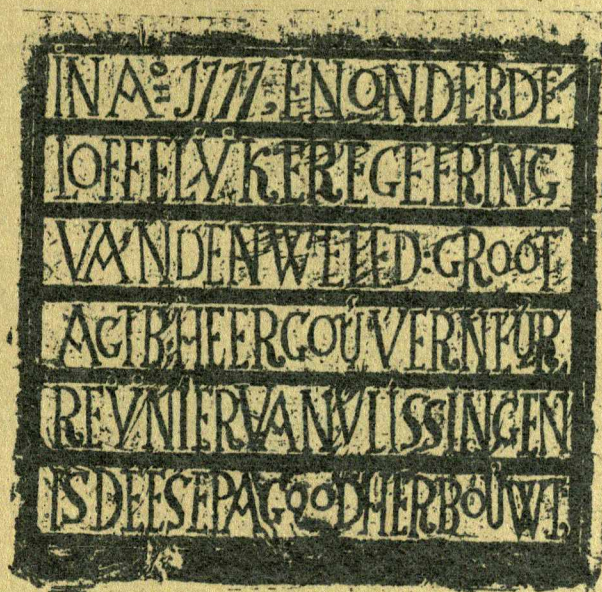 IN Aº 1777, EN ONDER DE
LOFFELŸKE REGEERING
VAN DEN WELED: GROOT
AGTB: HEER GOUVERNEUR
REŸNIER VAN VLISSINGEN
IS DEESE PAGOOD HERBOUWT.